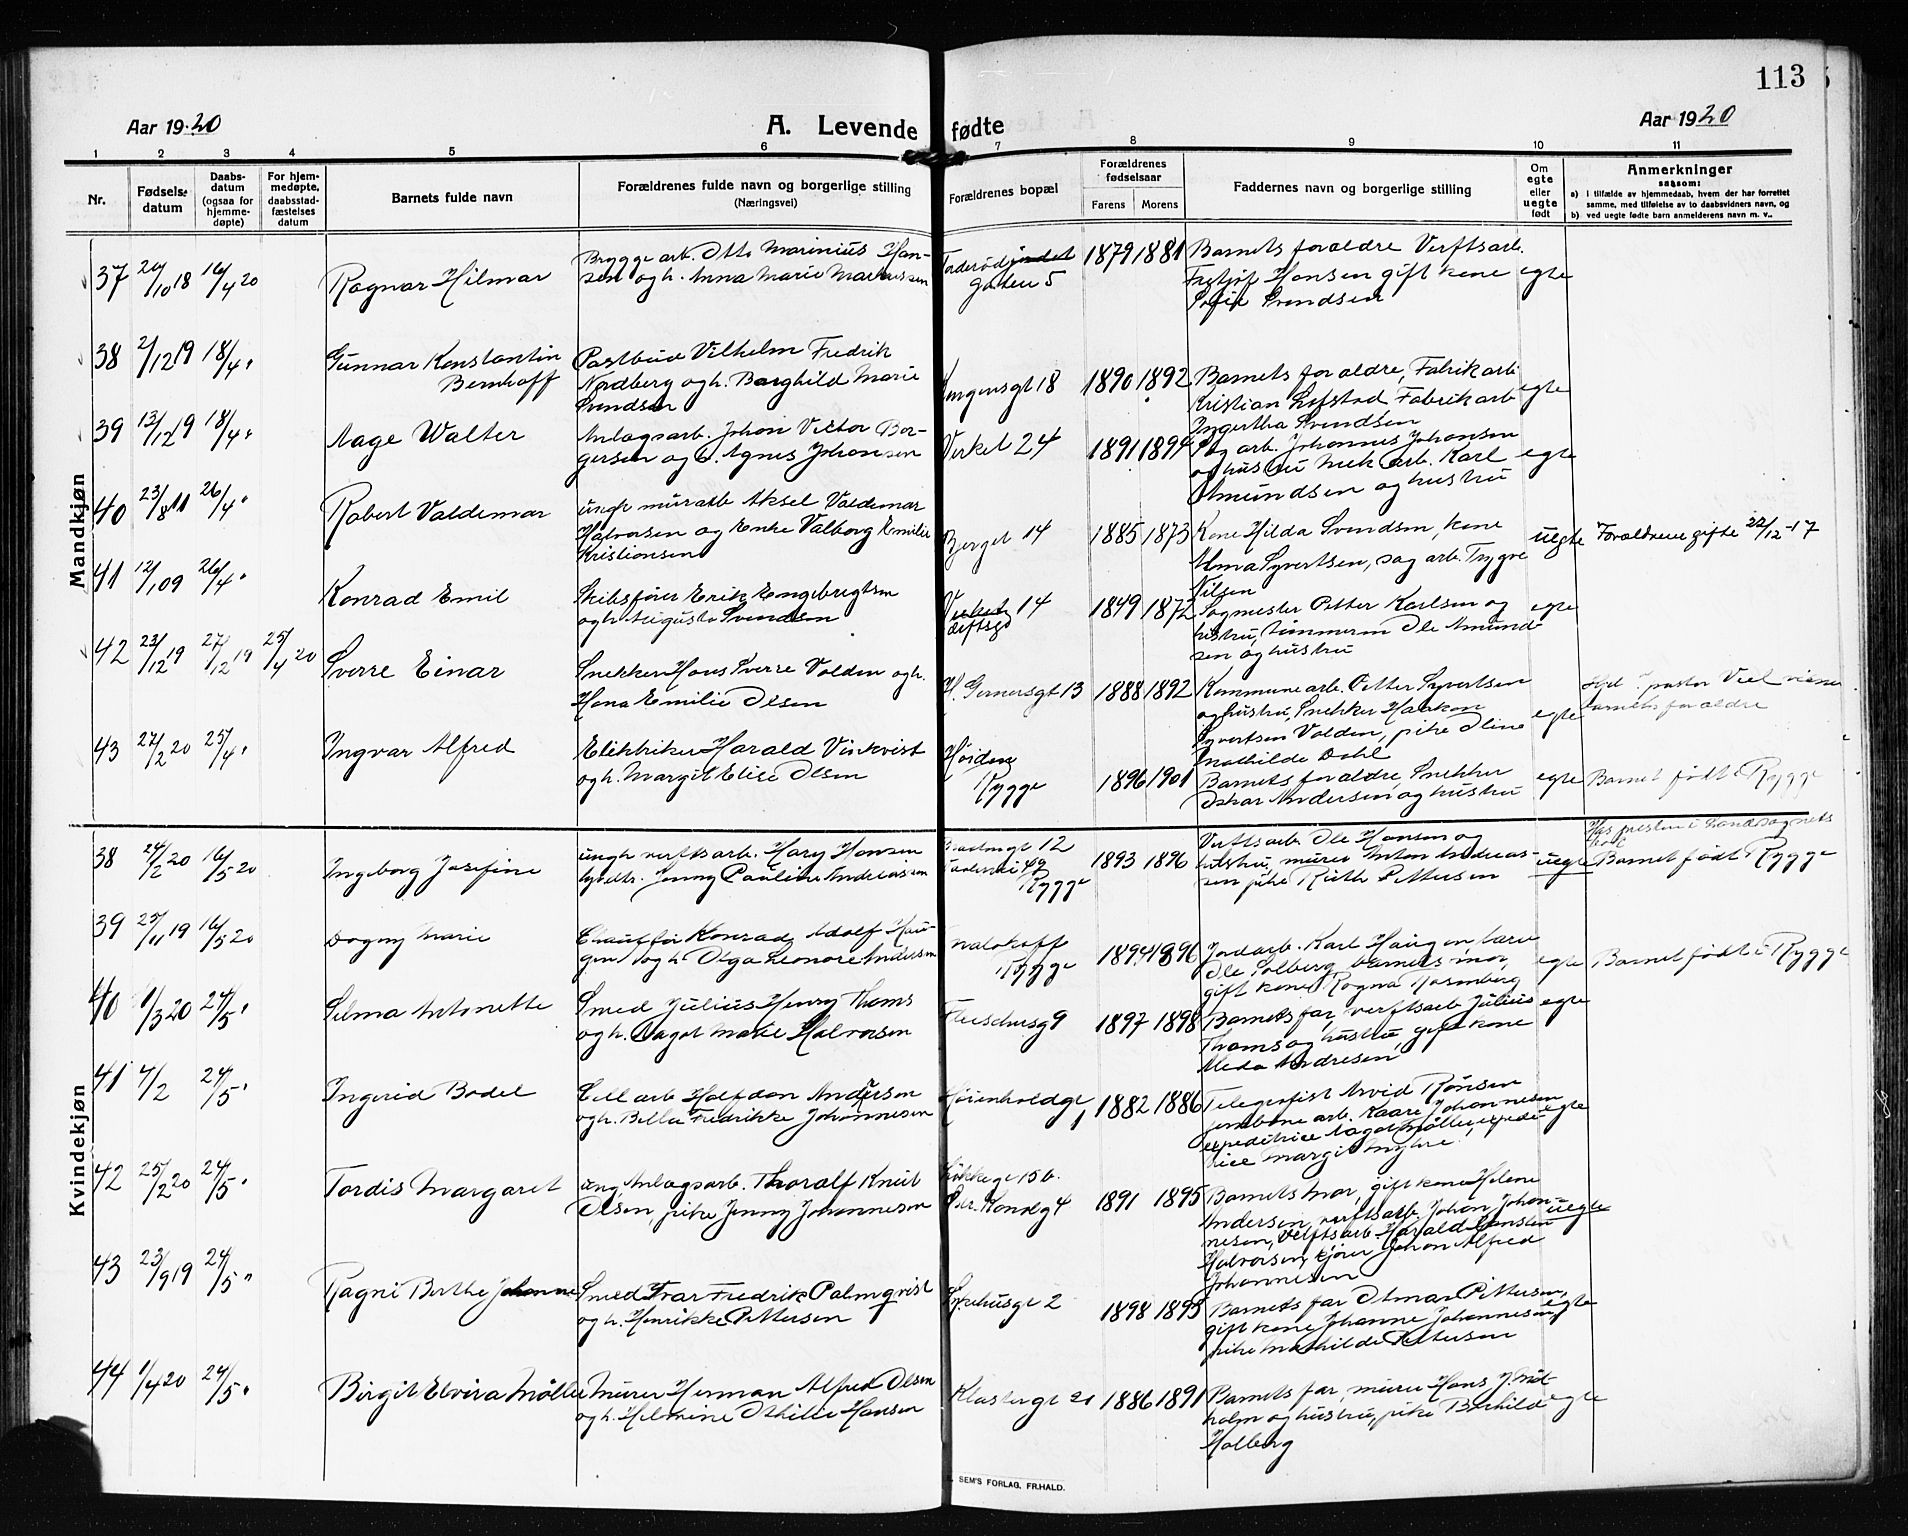 113
Aar 1920
A. Levende fødte
Aar 1920
1 2 3 4 5 6 7 8 9 10 11
Nr.
Fødselsdatum
Daabsdatum (ogsaa for hjemmedøpte)
For hjemmedøpte, daabsstadfæstelses datum
Barnets fulde navn
Forældrenes fulde navn og borgerlige stilling
(Næringsvei)
Forældrenes bopæl
Forældrenes fødselsaar
Farens Morens
Faddernes navn og borgerlige stilling
Om egte eller uegte født
Anmerkninger
saasom:
a) i tilfælde av hjemmedaab, hvem der har forrettet
samme, med tilføielse av to daabsvidners navn, og
b) ved uegte fødte barn anmelderens navn m. v..
Mandkjøn
37 20/10 18 16/4 20
Ragnar Hilmar
Brygge arb. Otto Marinius Han-
sen og h. Anna Marie Markussen
gaten 5
1879 1881
Barnets forældre Verftsarb.
Fritjof Hansen gift kone
Sofie Svendsen
egte
38 2/12 19 18/4 "
Gunnar Konstantin
Bernhoff
Postbud Vilhelm Fredrik
Nordberg og h. Borghild Marie
Svendsen
Kongensgt 18
1890 1892
Barnets forældre, Fabrikarb
Kristian Lofstad Fabrikarb
Ingertha Svendsen
egte
39 13/12 19 18/4 "
Aage Walter
Anlægsarb. Johan Victor Bor-
gersen og h. Agnes Johansen
Verket 24
1891 1894
Sag arb. Johannes Johansen
og hustru Mek arb. Karl
Amundsen og hustru
egte
40 23/8 11 26/4 "
Robert Valdemar
ungk murarb Aksel Valdemar
Halvorsen og Enke Valborg Emilie
Kristiansen
Berget 14
1885 1873
Kone Hilda Svendsen, kone
Alma Syvertsen, sag arb. Trygve
Nilsen
uegte
Forældrene gifte 22/12-17
41 12/1 09 26/4 "
Konrad Emil
Skibsfører Erik Engebregtsen
og h. Augusta Svendsen
14
1849 1872
Sagmester Petter Karlsen og
hustru, tømmerm Ole Amund-
sen og hustru
egte
42 23/12 19 27/12 19 25/4 20
Sverre Einar
Snekker Hans Sverre Volden og h.
Hana Emilie Olsen
H. Gernersgt 13
1888 1892
Kommunearb. Petter Syvertsen
og hustru, Snekker Haakon
Syvertsen Volden, pike Oline
Mathilde Dahl
egte
barnets forældre
43 27/2 20 25/4 "
Ingvar Alfred
Elektriker Harald Vinkvist
og h. Margit Elise Olsen
Høiden
Rygge
1896 1901
Barnets forældre, Snekker
Oskar Andersen og hustru
egte
Barnet født i Rygge
Kvindekjøn
38 24/2 20 16/5 20
Ingeborg Josefine
ungk verftsarb. Harry Hansen
Jenny Pauline Andreassen
12
Rygge
1893 1896
Verftsarb Ole Hansen og
hustru, murer Anton Andreas-
sen pike Ruth Pettersen
uegte
Barnet født i Rygge
39 25/11 19 16/5 20
Dagny Marie
Chauffør Konrad Adolf Hau-
gen og h Olga Leonore Andersen
Rygge
1894 1896
Jordarb. Karl Haugen,
Ole Solberg, barnets mor,
gift kone Ragna Rosenberg
egte
Barnet født i Rygge
40 1/3 20 24/5 "
Selma Antonette
Smed Julius Henry Thoms
og h. Dagot Marie Halvorsen
9
1897 1898
Barnets far, verftsarb Julius
Thoms og hustru, gift kone
Alida Andresen
egte
41 4/2 24/5 "
Ingerid Bodel
Cell arb Halfdan Andersen
og h. Bella Fredrikke Johannesen
1
1882 1886
Telegrafist Arvid Rønsen
jernbane arb. Kaare Johannesen
expeditrice Aagot Møller, expedi-
trice Margit Myhre
egte
42 25/2 20 24/5 "
Tordis Margaret
ung. Anlægsarb. Thoralf Knut
Olsen, pike Jenny Johannesen
Løkkegt 15 b.
1891 1895
Barnets mor, gift kone Helene
Andersen, verftsarb. Johan Johan-
nesen, verftsarb Harald
Halvorsen, kjører Johan Alfred
Johannesen
uegte
43 23/9 19 24/5 "
Ragni Berthe Johanne
Smed Ivar Fredrik Palmqvist
og h. Henrikke Pettersen
Sykehusgt 2
1898 1895
Barnets far Otmar Pettersen,
gift kone Johanne Johannesen,
pike Mathilde Pettersen
egte
44 1/4 20 24/5 "
Birgit Elvira Møller
Murer Herman Alfred Olsen
og h. Helmine Othilie Hansen
Klostergt 21
1886 1891
Barnets far, murer Hans J. Mit-
holm og hustru, pike Borhild
Holberg
egte
SEM'S FORLAG, FR.HALD.